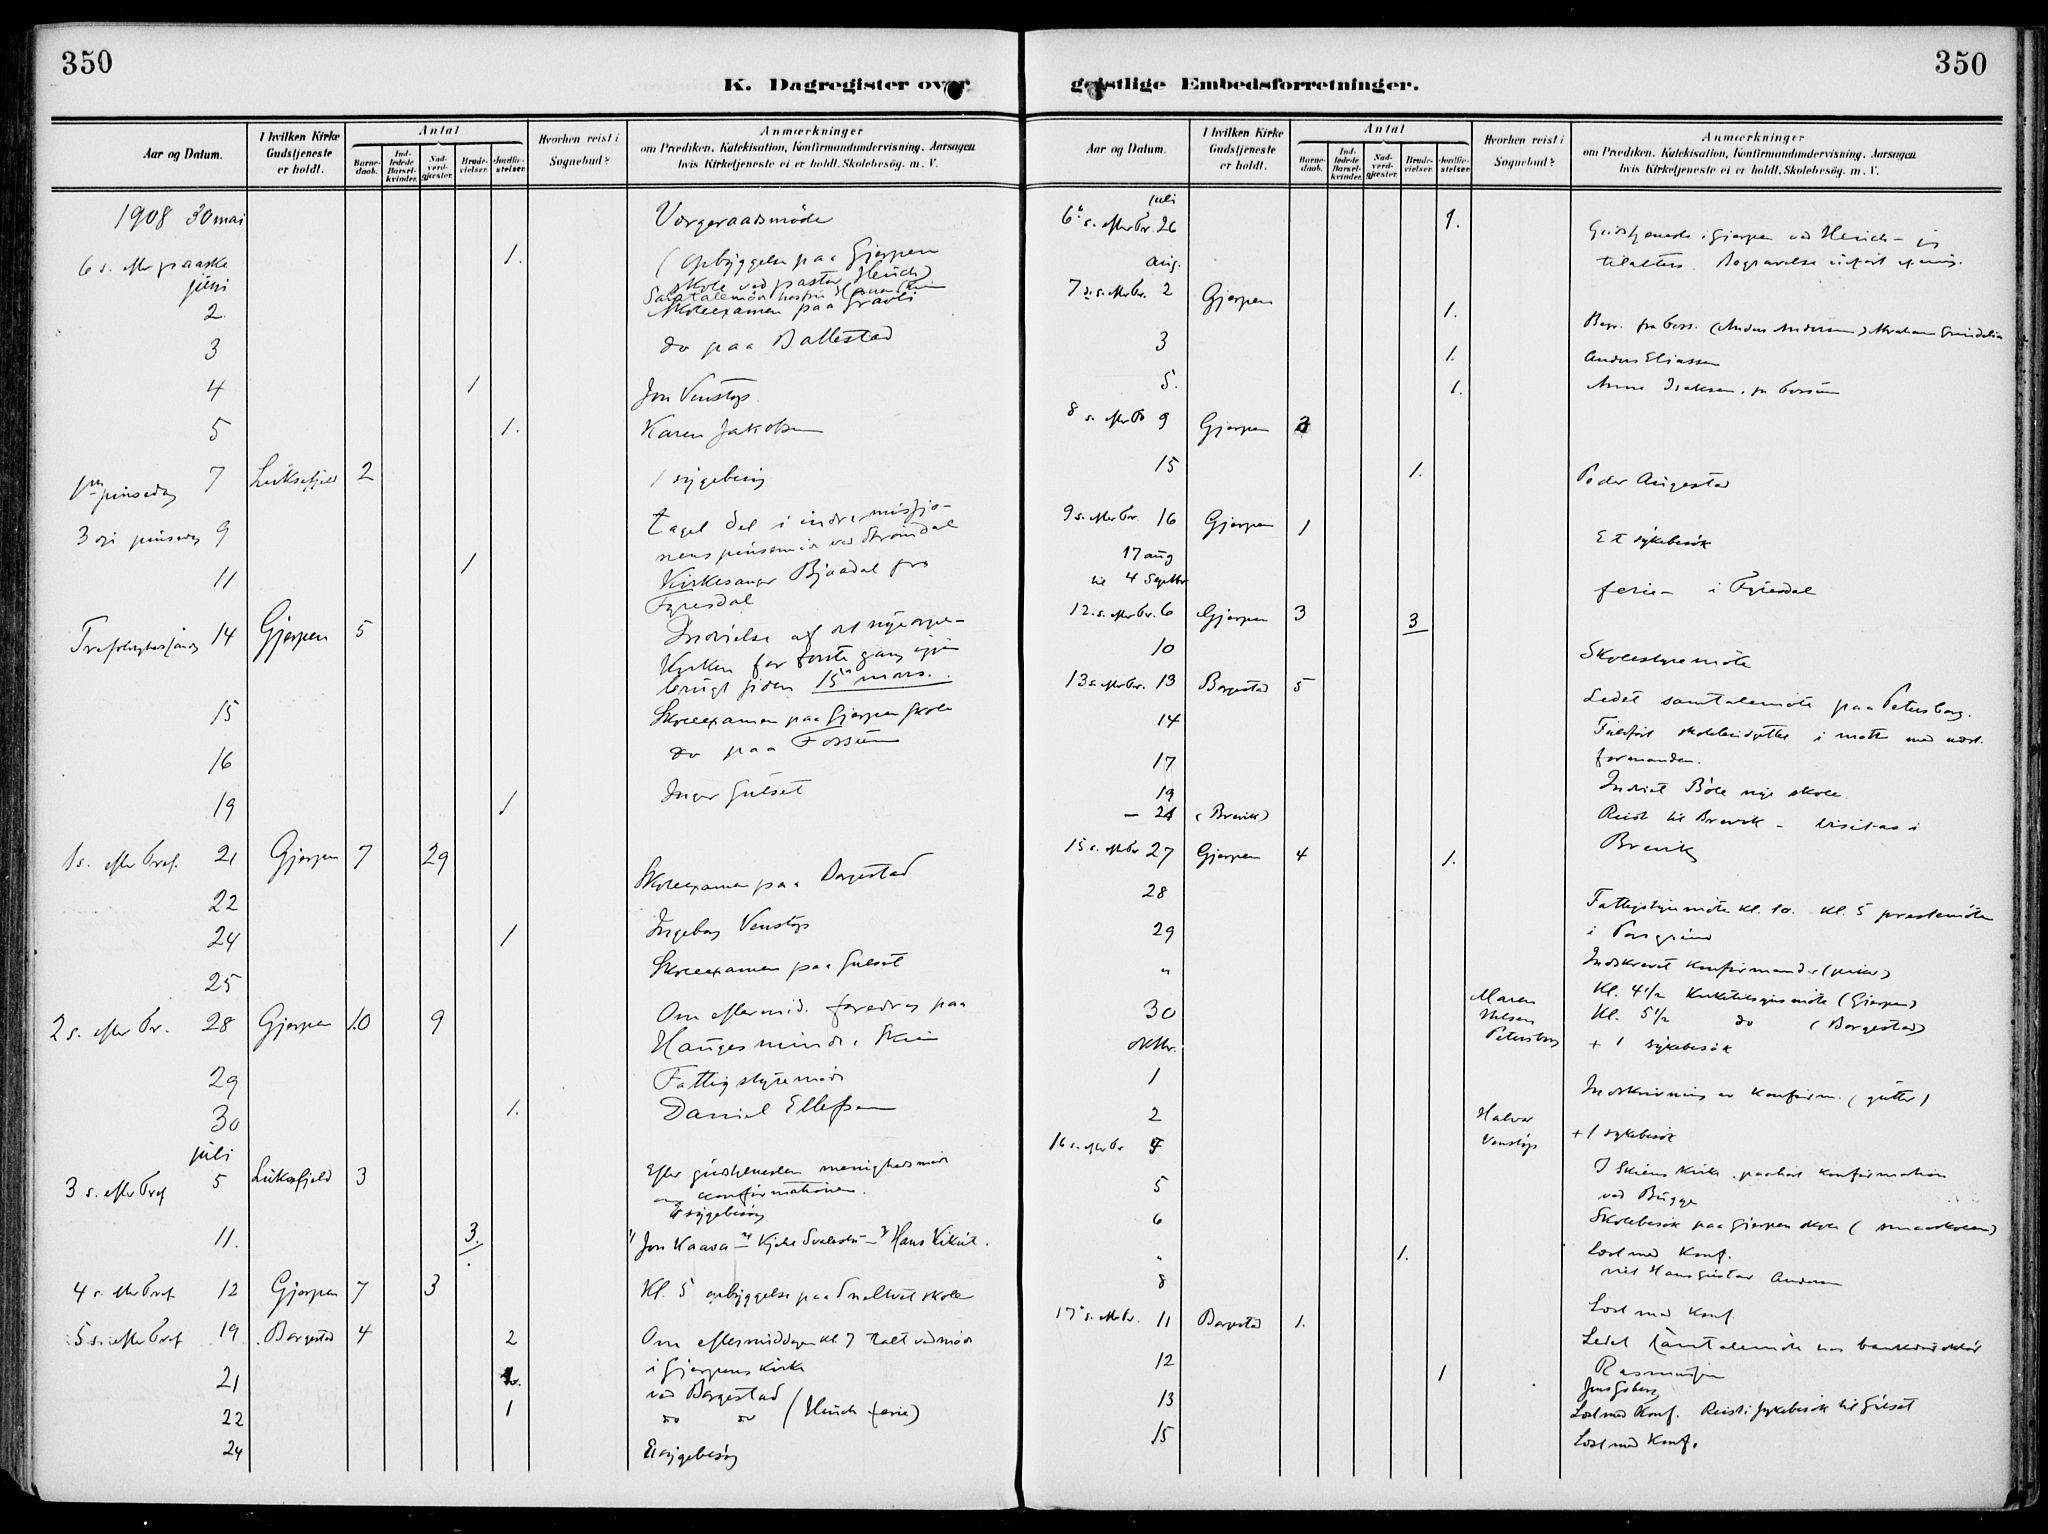 350
K. Dagregister over
Aar og Datum.
I hvilken Kirke Gudstjeneste er holdt.
Antal
Barne-daab.
Ind-ledede Barsel-kvinder.
Nad-verd-gjæster.
Brude-vielser.
Jordfæ-stelser.
Hvorhen reist i Sognebud?
Anmærkninger
om Prædiken, Katekisation, Konfirmandundervisning, Aarsagen
hvis Kirketjeneste ei er holdt, Skolebesög. m. V.
1908 30 mai Vergeraadsmöde
6 s. efter paaske 1. (Opbyggelse paa Gjerpen
juni skole ved pastor Heuch)
2. Skoleexamen paa Gravli
3 do paa Ballestad
4 1 Jon Venstøp.
5 1. Karen Jakobsen
1ste pinsedag 7 Luksefjeld 2 1 sygebesøg
3die pinsedag 9 taget del i indremissjo-
nens pinsemøde ved Strømdal
11 1 Kirkesanger Bjaadal fra
Fyresdal
Trefoldighedssøndag 14 Gjerpen 5 Indvielse af det nye orge-
Kirken for første gang igjen
brugt siden 15de mars.
15 Skoleexamen paa Gjerpen skole
16 do paa Fossum
19 1 Inger Gulset
1 s. efter Tref. 21 Gjerpen 7 29
22 Skoleexamen paa Borgestad
24 1 Ingeborg Venstøp
25 Skoleexamen paa Gulset
2 s. efter Tr. 28 Gjerpen 10 9 Om eftermid. foredrag paa
Hauges minde, Skien
29 Fattigstyremøde
30 1. Daniel Ellefsen
juli
3 s. efter Tref 5 Luksefjeld 3 Efter gudstjenesten menighedsmøde
om konfirmationen.
Et sygebesøg
11. 3. 1) Jon Kaasa – 2) Kjetil – 3) Hans Kikut.
4 s. efter Tref. 12 Gjerpen 7 3 Kl. 5 opbyggelse paa skole
5 s. efter Tref 19 Borgestad 4 2 Om eftermiddagen kl 7 talt ved møde
i Gjerpens kirke
21 1. ved Borgestad
22 1 do do (Heuch ferie)
24 Et sygebesøg
350
geistlige Embedsforretninger.
Aar og Datum.
I hvilken Kirke Gudstjeneste er holdt.
Antal
Barne-daab.
Ind-ledede Barsel-kvinder.
Nad-verd-gjæster.
Brude-vielser.
Jordfæ-stelser.
Hvorhen reist i Sognebud?
Anmærkninger
om Prædiken, Katekisation, Konfirmandundervisning, Aarsagen
hvis Kirketjeneste ei er holdt, Skolebesög. m. V.
juli
6te s. efter Tr. 26 1. Gudstjeneste i Gjerpen ved Heuch – jeg
tilalters. Begravelse udført af mig.
aug.
7de s. efter Tr. 2 Gjerpen 1. Begr. fra (Anders Andersen)
3 1. Anders Eliassen
5. 1. Anne Isaksen, fr Fossum
8 s. efter Tr 9 Gjerpen 3
15 1. Peder Augestad
9 s. efter Tr. 16 Gjerpen 1 Et sykebesøk
17 aug
til 4 Septbr ferie – i Fyresdal
12. s. efter Tr. 6 Gjerpen 3 3
10 Skolestyremøte
13 s. efter Tr. 13 Borgestad 5 Ledet samtalemøte paa Petersborg.
14 i møte med
17 formanden.
19 Indviet Böle nye skole.
– 21 (Brevik) Reist til Brevik – visitas i
Brevik
15 s. efter Tr 27 Gjerpen 4 1.
28 Fattigstyremøte kl. 10. Kl. 5 prestemøte
29 i Porsgrund
" Indskrevet konfirmander (piker)
30 Maren Nilsen Petersborg Kl. 4 1/2 Kirketilsynsmøte (Gjerpen)
Kl. 5 1/2 do (Borgestad)
+ 1 sykebesøk
oktbr.
1 Indskrivning av konfirm. (gutter)
2 Halvor Venstøp + 1 sykebesøk
16 s. efter Tr 4 I Skiens kirke, paahørt konfirmation
ved Bugge
5 Skolebesøk paa Gjerpen skole (smaaskolen)
6 Læst med konf.
" 1. viet Hans Gustav Andersen
8 Læst med konf.
17de s. efter Tr. 11 Borgestad 1. Ledet samtalemøte hos bankdirektør
Rasmussen
12 1
13 Læst med konf. Reist i sykebesøk til Gulset
15 Læst med konf.